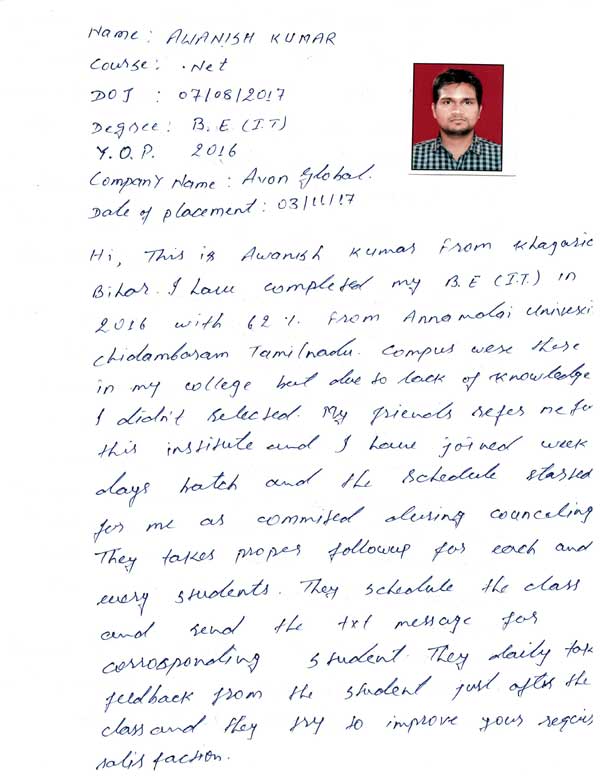 Name : AWANISH KUMAR
Course : .Net
DOJ : 07/08/2017
Degree : B.E (I.T)
Y.O.P. 2016
Company Name : Avon Global.
Date of placement : 03/11/17
Hi, This is Awanish Kumar from Khagaria
Bihar. I have completed my B.E (I.T.) in
2016 with 62 % from Annamalai Universi
Chidambaram Tamilnadu. Compus were there
in my college but due to lack of knowledge
I didn't selected. My friends refer me for
this institute and I have joined week
days batch and the schedule started
for me as commited during counceling
They takes proper followup for each and
every students. They schedule the class
and send the txt message for
corrosponding student. They daily tak
feedback from the student just after the
class and they try to improve your requir
satisfaction.